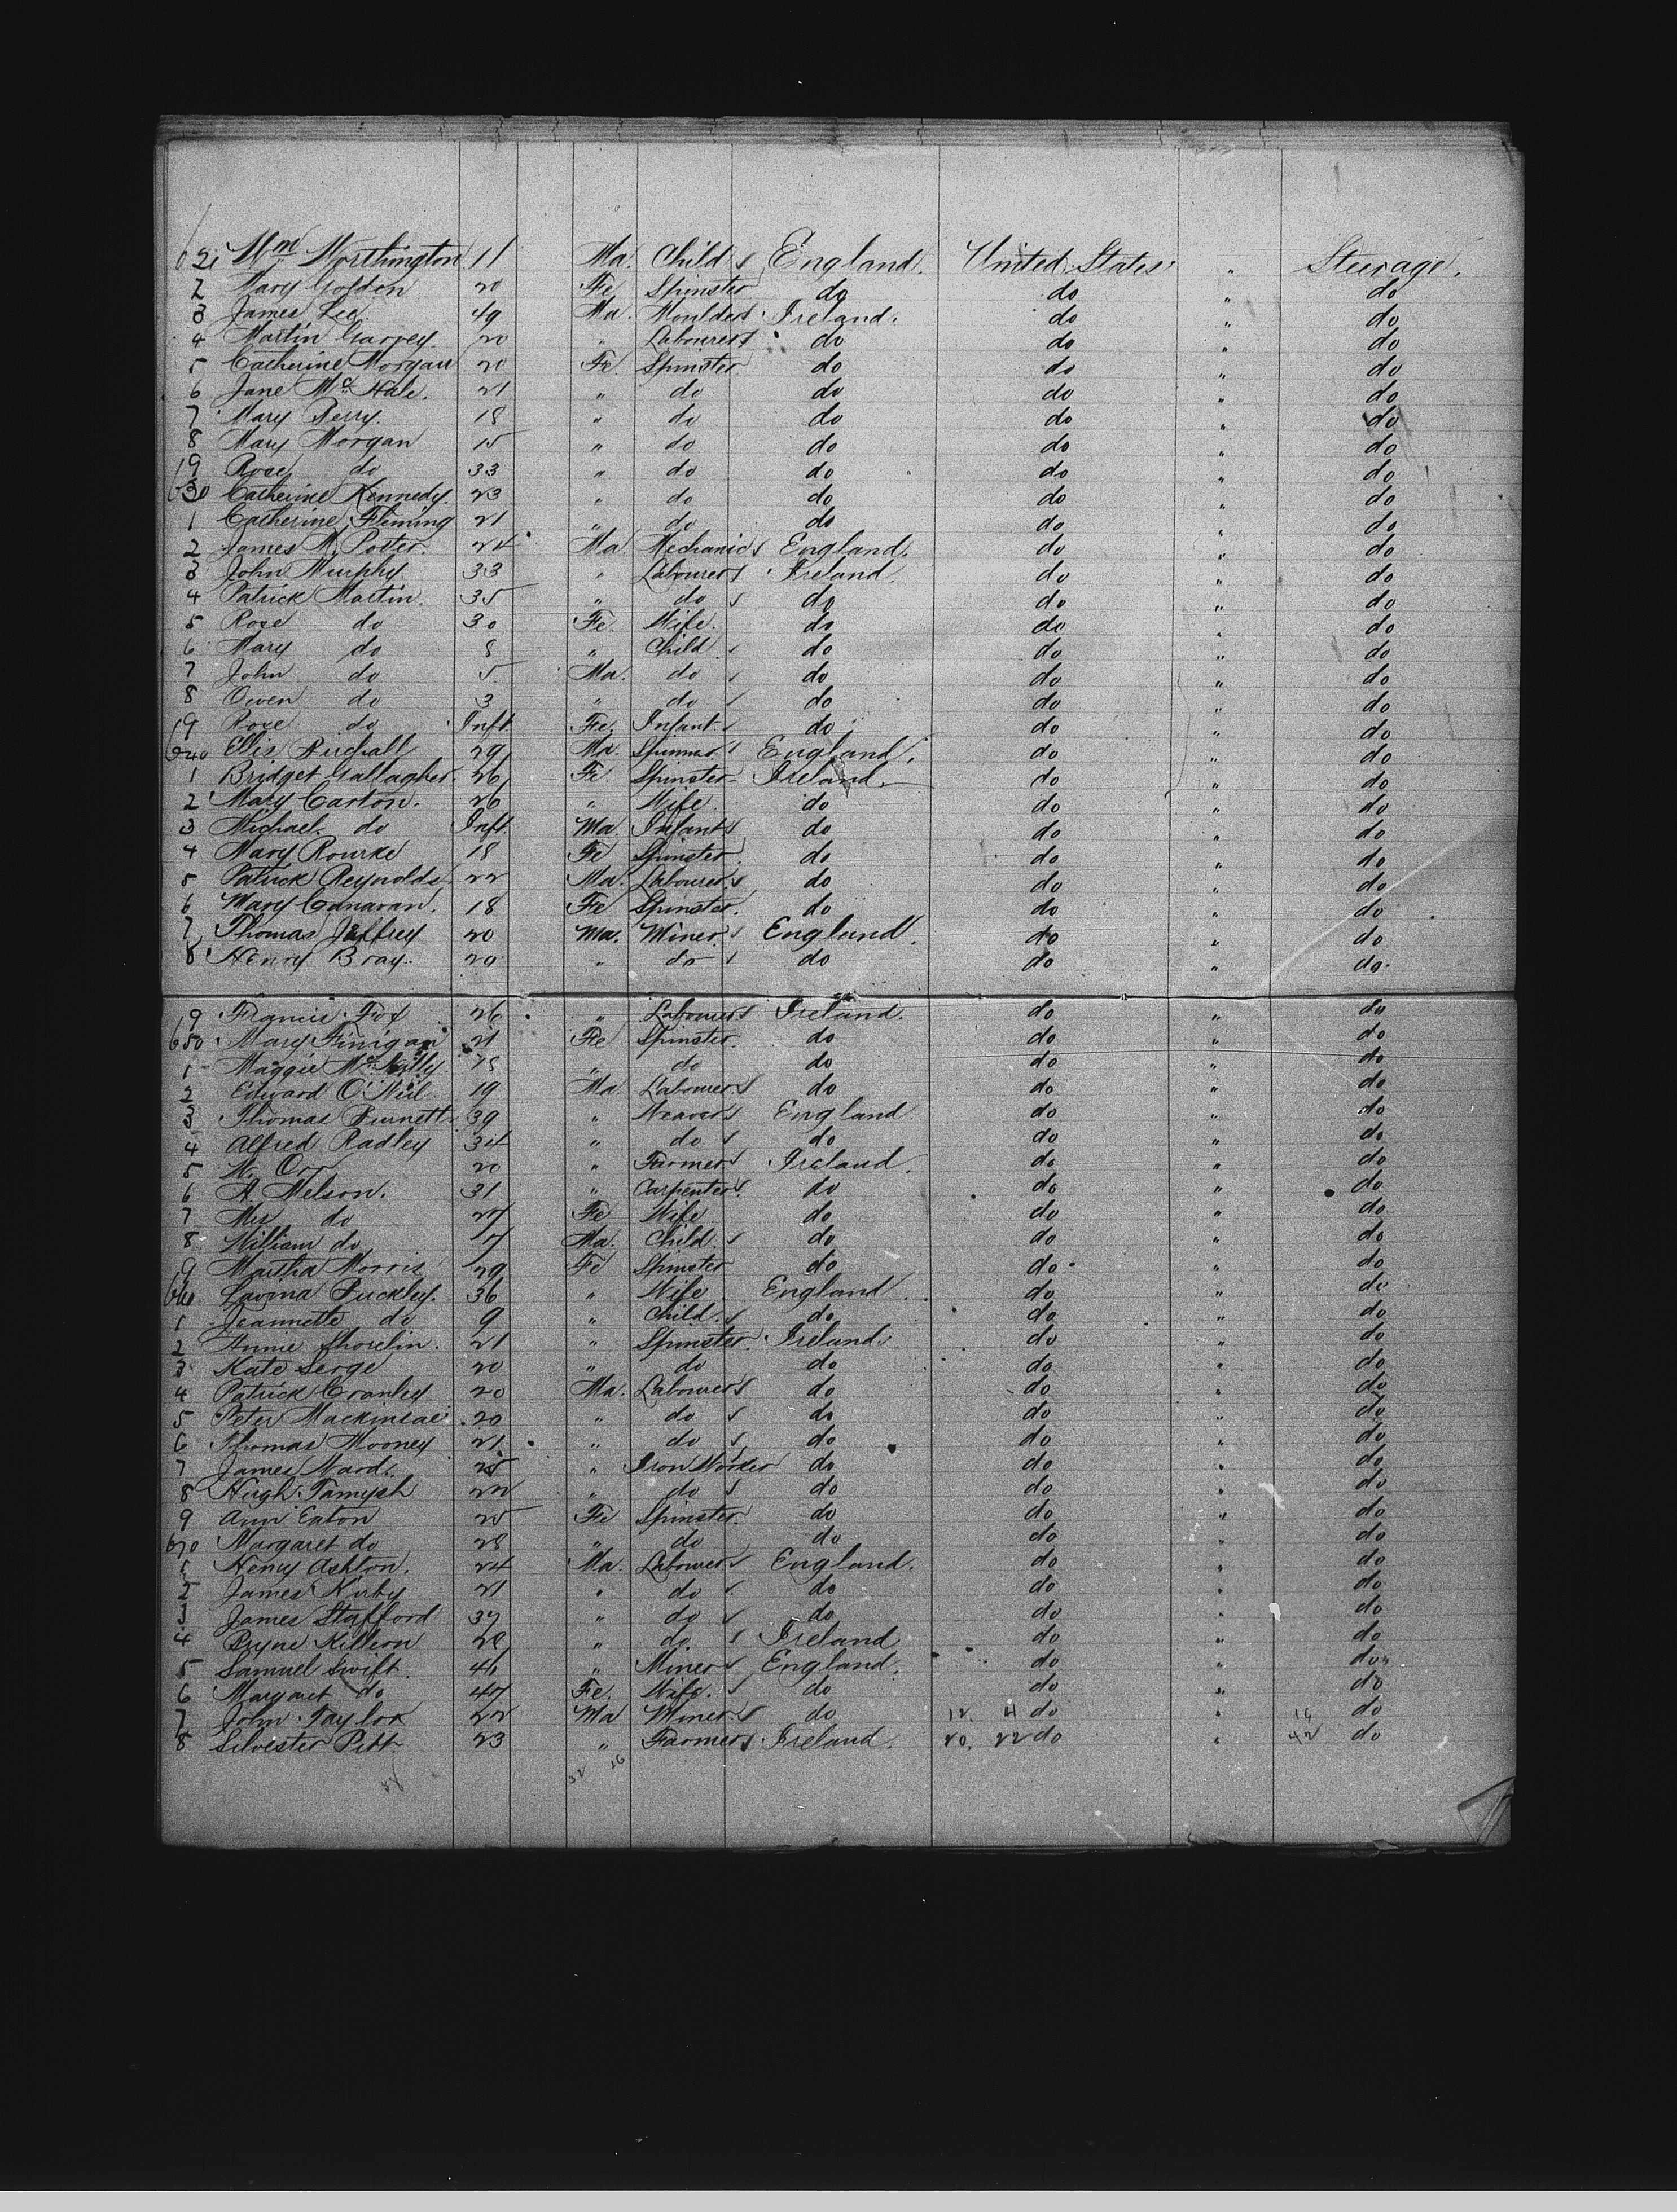 621 Wm Worthington 11 Ma. Child England. United States " Steerage.
2 Mary Golden 20 Fe Spinster do do " do
3 James Lee 49 Ma. Moulder Ireland. do " do
4 Martin Garvey 20 " Labourer do do " do
5 Catherine Morgan 20 Fe. Spinster do do " do
6 Jane McHale. 21 " do do do " do
7 Mary Berry. 18 " do do do " do
8 Mary Morgan 15 " do do do " do
9 Rose do 33 " do do do " do
630 Catherine Kennedy. 23 " do do do " do
1 Catherine Fleming 21 " do do do " do
2 James M. Potter. 24 Ma. Mechanic England. do " do
3 John Murphy 33 " Labourer Ireland. do " do
4 Patrick Martin. 35 " do do do " do
5 Rose do 30 Fe. Wife. do do " do
6 Mary do 8 " Child do do " do
7 John do 5 Ma. do do do " do
8 Owen do 3 " do do do " do
9 Rose do Inft Fe. Infant do do " do
640 Ellis 29 Ma. Spinner England. do " do
1 Bridget Gallagher. 26 Fe. Spinster Ireland. do " do
2 Mary Carton. 26 " Wife. do do " do
3 Michael. do Inft. Ma. Infant do do " do
4 Mary Rourke 18 Fe Spinster. do do " do
5 Patrick Reynolds. 22 Ma. Labourer. do do " do
6 Mary Canavan. 18 Fe Spinster. do do " do
7 Thomas Jeffrey 20 Ma. Miner England. do " do
8 Henry Bray. 20 " do do do " do
9 Francis Fox 26 " Labourer Ireland. do " do
650 Mary Finigan 21 Fe Spinster. do do " do
1 Maggie " do do do " do
2 Edward O'Neil 19 Ma. Labourer. do do " do
3 Thomas 39 " Weaver England do " do
4 Alfred Radley 34 " do do do " do
5 W. Orr 20 " Farmer Ireland. do " do
6 A. Nelson. 31 " Carpenter do do " do
7 Mrs do 27 Fe Wife do do " do
8 William do 7 Ma. Child do do " do
9 Martha Morris 29 Fe Spinster do do " do
660 Lavina Buckley. 36 " Wife England. do " do
1 Jeannette do 9 " Child. do do " do
2 Annie 21 " Spinster. Ireland. do " do
3 Kate Serge 20 " do do do " do
4 Patrick Cranley 20 Ma. Labourer do do " do
5 Peter 20 " do do do " do
6 Thomas Mooney 21 " do do do " do
7 James Ward. 25 " Iron Worker do do " do
8 Hugh 22 " do do do " do
9 Ann Eaton 25 Fe Spinster. do do " do
670 Margaret do 28 " do do do " do
1 Henry Ashton. 24 Ma. Labourer England. do " do
2 James Kirby 21 " do do do " do
3 James Stafford 37 " do do do " do
4 Killeon 28 " do. Ireland do " do
5 Samuel Swift. " Miner England. do " do
6 Margaret do 47 Fe. Wife. do do " do
7 John Taylor 22 Ma Miner. do 12. 4 do " do
8 Silvester Pitt. 23 " Farmer Ireland. 20. 22 do " 42 do
32 26